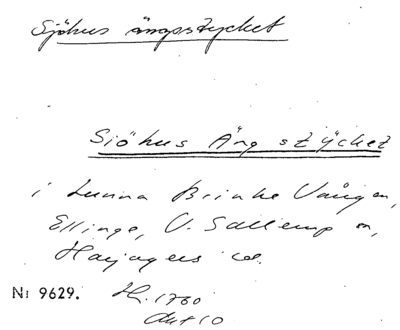 Sjöhus ängsstycket
Siöhus Äng stÿcket
i Lunna Brinke Vången,
Ellinge, V. Sallerup sn,
Harjagers hd.
Nr 9629. Hr. 1760
akt 10